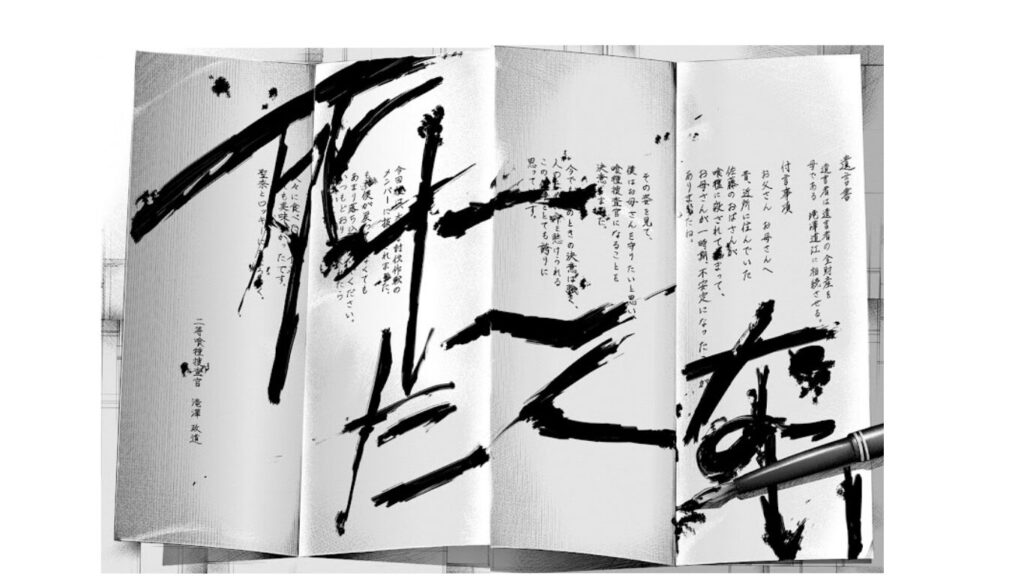 遺言書
遺言者は遺言者の全財産を
母である 滝澤道江に相続させる。
付言事項
お父さん お母さんへ
昔、近所に住んでいた
佐藤のおばさんが
喰種に殺されてしまって、
お母さんが一時期、不安定になった が
ありましたね。
その姿を見て、
僕はお母さんを守りたいと思い、
喰種捜査官になることを
決意しました。
今でも のときの決意は
人の 懸けられる
この とても誇りに
思って す。
今回 討伐作戦の
メンバーに れました。
も 僕が くても
あまり落ち ください。
いつもどおり たら
々に食べ
も美味 たです。
聖奈とロッキーに
二等喰種捜査官 滝澤 政道
死にたくない